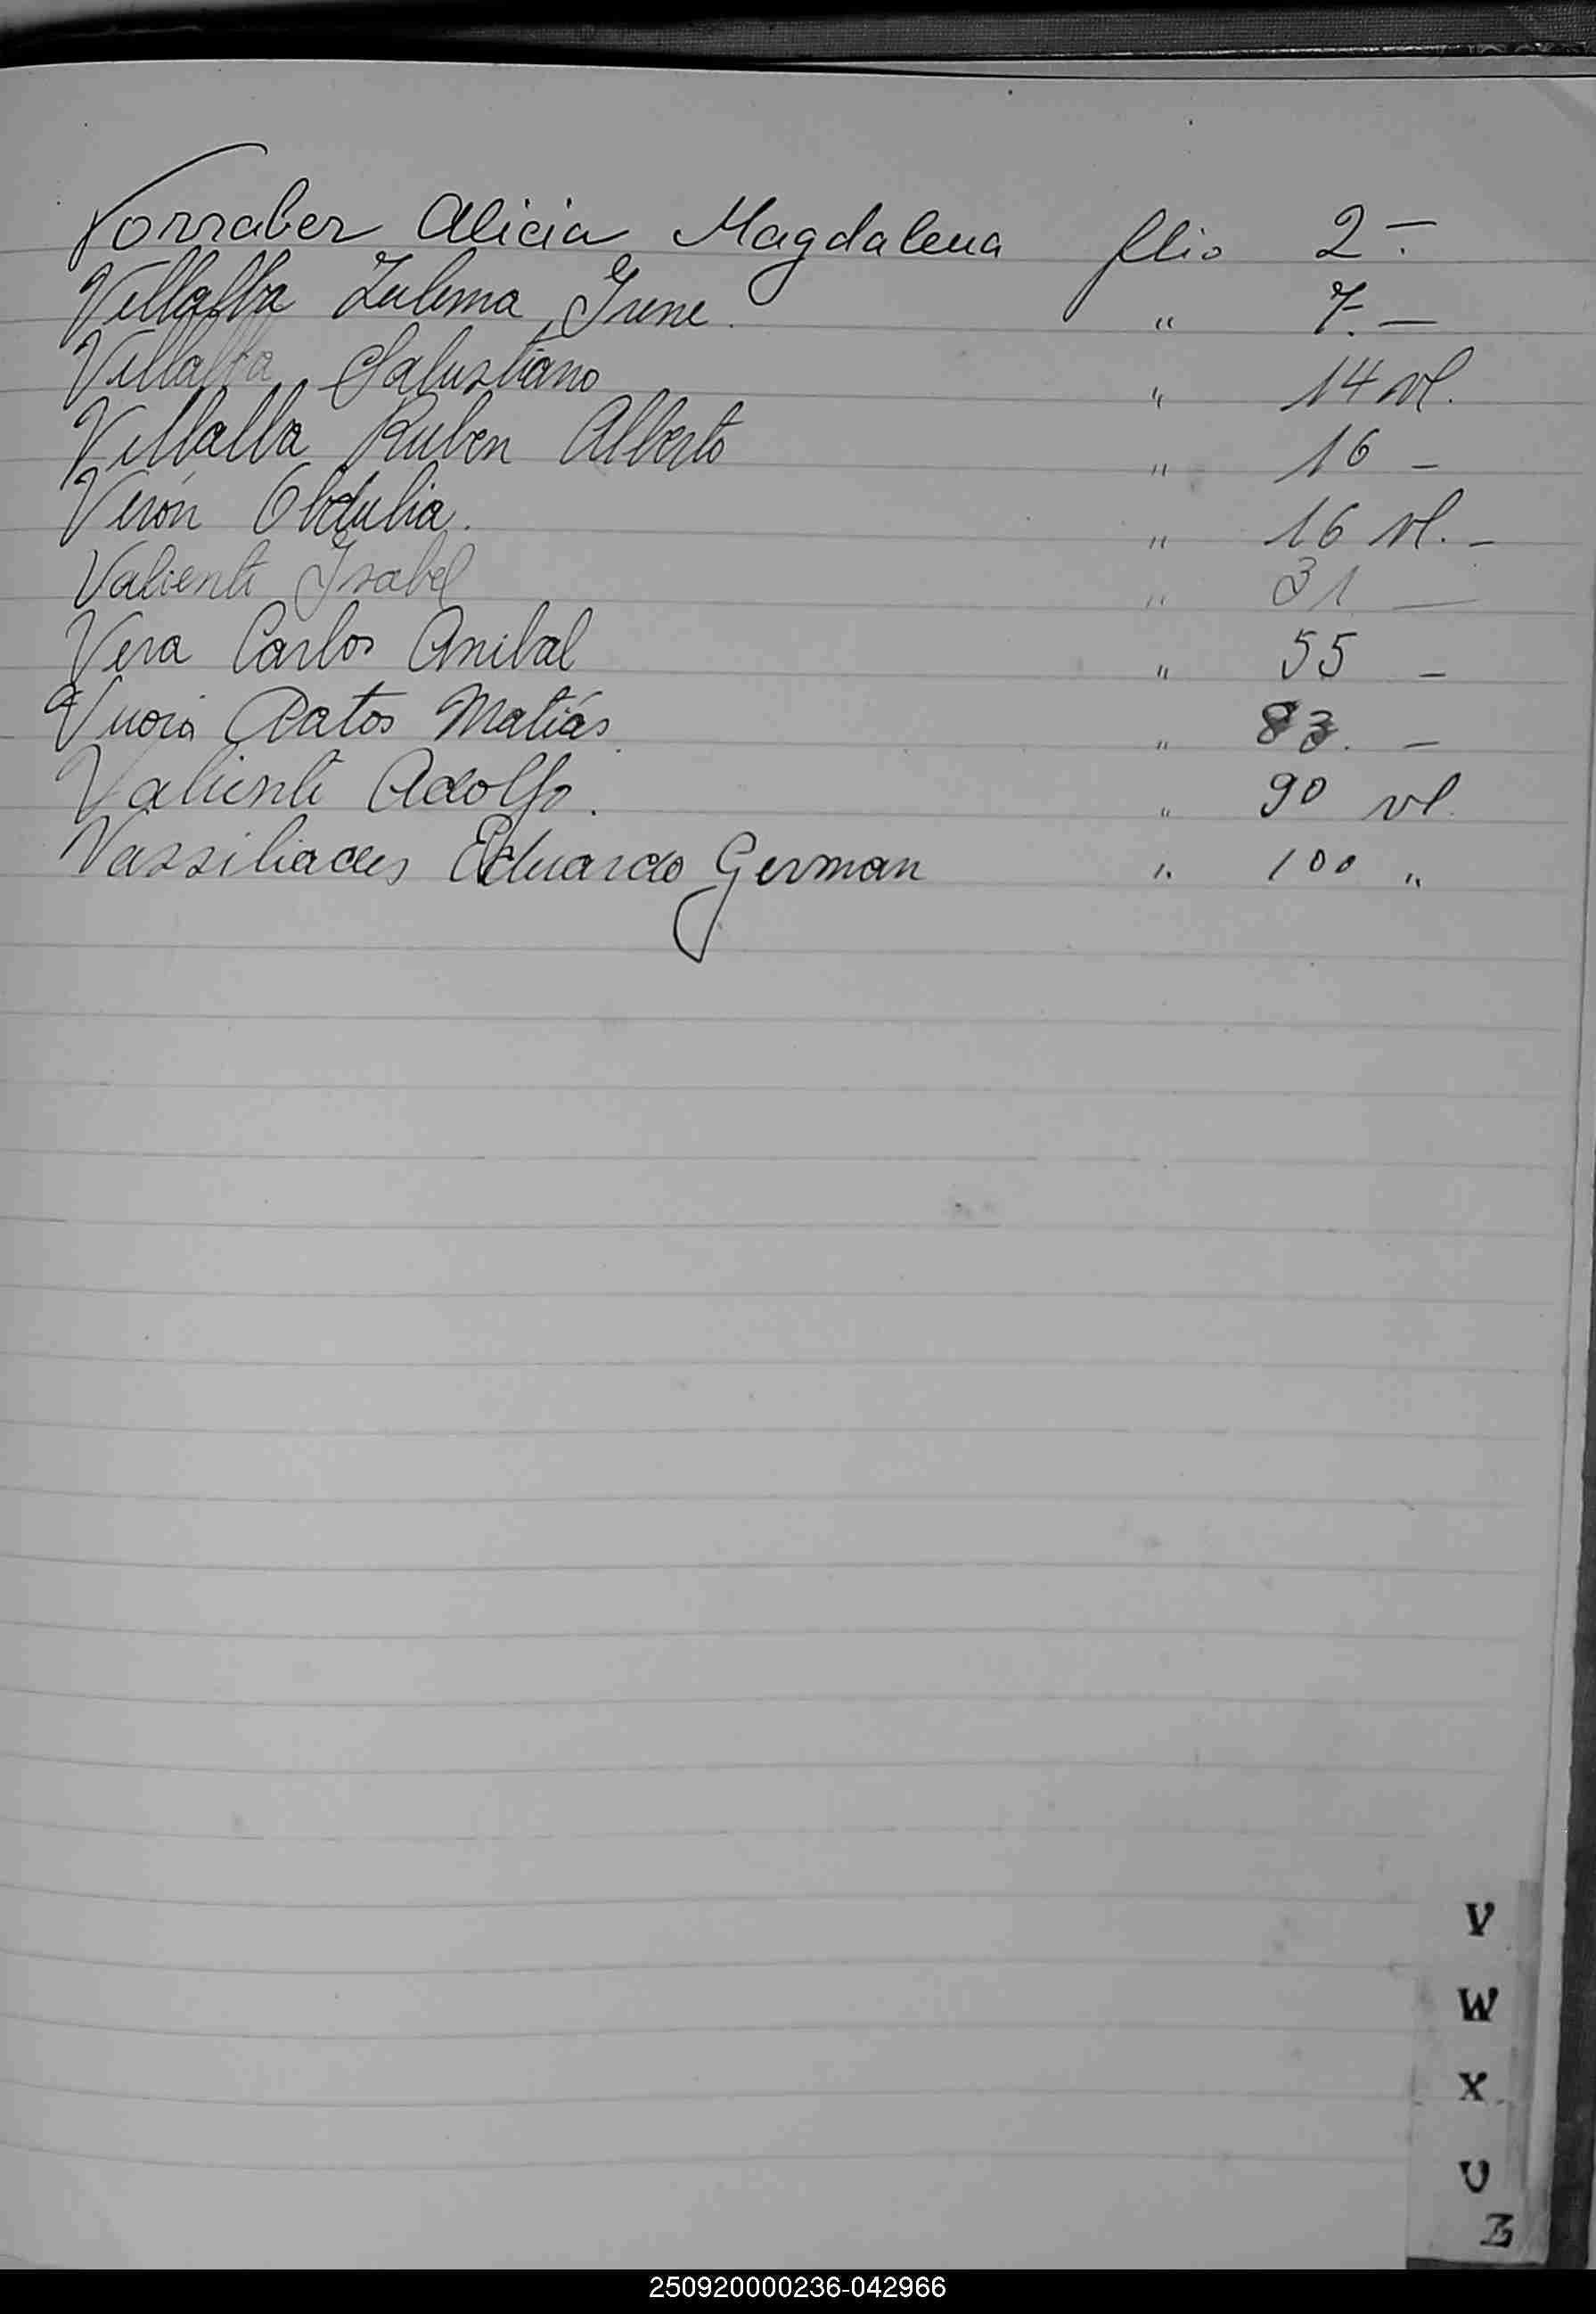 Vorraber Alicia Magdalena flio 2-.
Villalba Zulema Irene. " 7. -
Villalba Salustiano " 14 vl.
Villalba Ruben Alberto " 16 -
Verón Obdulia. " 16 vl. -
Valiente Isabel " 31 -
Vera Carlos Anibal " 55 -
Matiás. " 83. -
Valiente Adolfo. " 90 vl.
Vassiliades Eduardo German " 100 "
V
W
X
U
Z
250920000236-042966